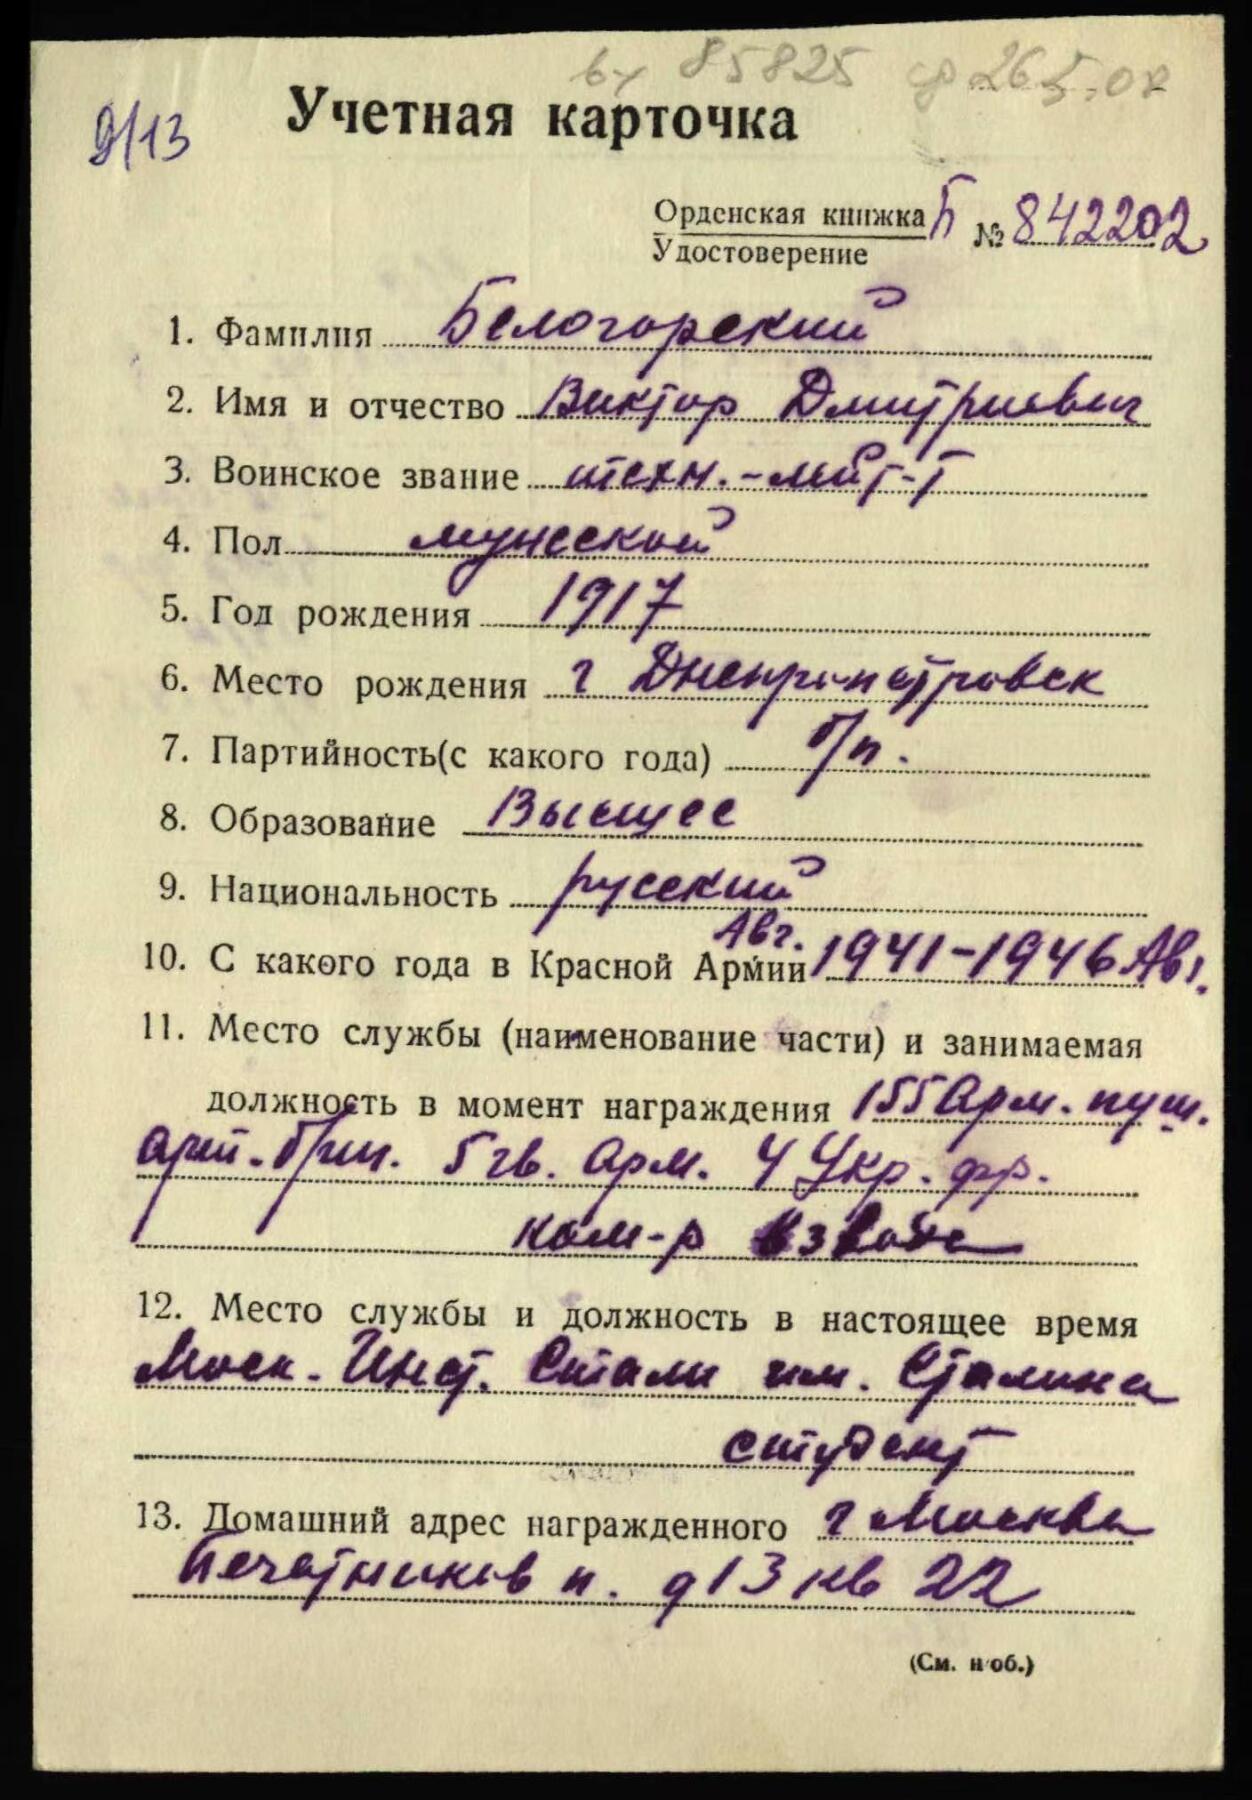 вх 85825 26.5.07
9/13
Учетная карточка
Орденская книжка Б № 842202
Удостоверение
1. Фамилия Белогорский
2. Имя и отчество Виктор Дмитриевич
3. Воинское звание техн.-лейт-т
4. Пол мужской
5. Год рождения 1917
6. Место рождения г Днепропетровск
7. Партийность(с какого года) б/п.
8. Образование Высшее
9. Национальность русский
Авг.
10. С какого года в Красной Армии 1941-1946 Авг.
11. Место службы (наименование части) и занимаемая
должность в момент награждения 155 Арм. пуш.
арт. бриг. 5 гв. Арм. 4 Укр. фр.
ком-р взвода
12. Место службы и должность в настоящее время
Моск. Инст. Стали им. Сталина
студент
13. Домашний адрес награжденного г Москва
Печатников п. д 13 кв 22
(См. н об.)